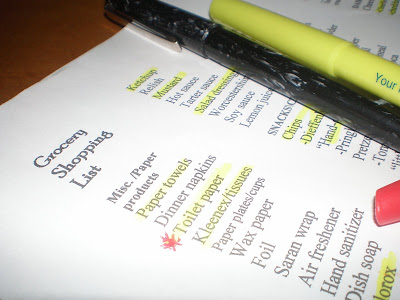 Grocery
Shopping
List
Misc./Paper
products
Paper towels
Dinner napkins
Toilet paper
Kleenex/tissues
Paper plates/cups
Wax paper
Foil
Saran wrap
Air freshener
Hand sanitizer
Dish soap
Ketchup
Relish
Mustard
Hot sauce
Tarter sauce
Salad dressing
Worcestershire
Soy sauce
Lemon juice
SNACKS
Chips
Your